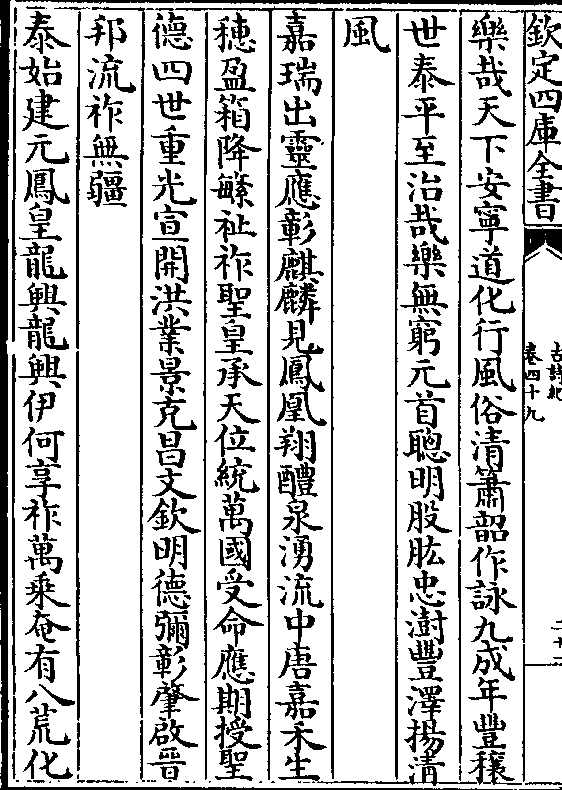 欽定四庫全書
古詩紀
卷四十九
樂哉天下安寧道化行風俗清簫韶作詠九成年豐穰
世泰平至治哉樂無窮元首聰明股肱忠澍豐澤揚清
風
嘉瑞出靈應彰麒麟見鳳凰翔醴泉湧流中唐嘉禾生
穗盈箱降繁祉祚聖皇承天位統萬國受命應期授聖
德四世重光宣開洪業景克昌文欽明德彌彰肇啟晉
邦流祚無疆
泰始建元鳳皇龍興龍興伊何享祚萬乘奄有八荒化